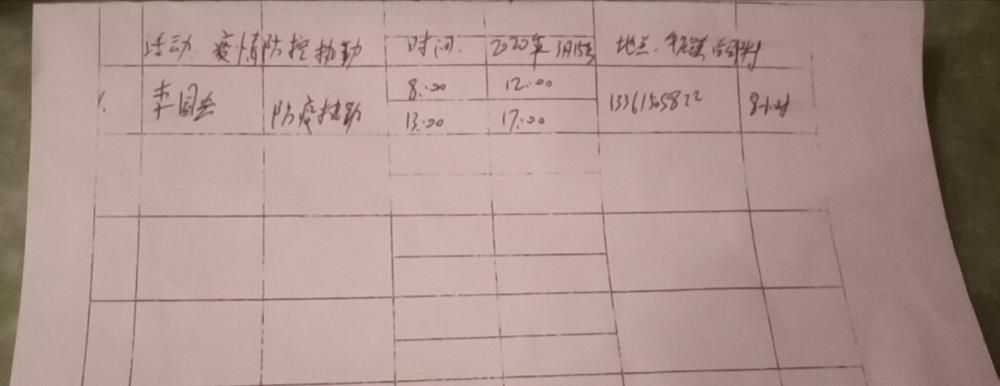 活动 疫情防控执勤 时间 2020年3月15日 地点
1. 李国 防疫执勤 8:00 12:00 13361505822 8小时
13:00 17:00